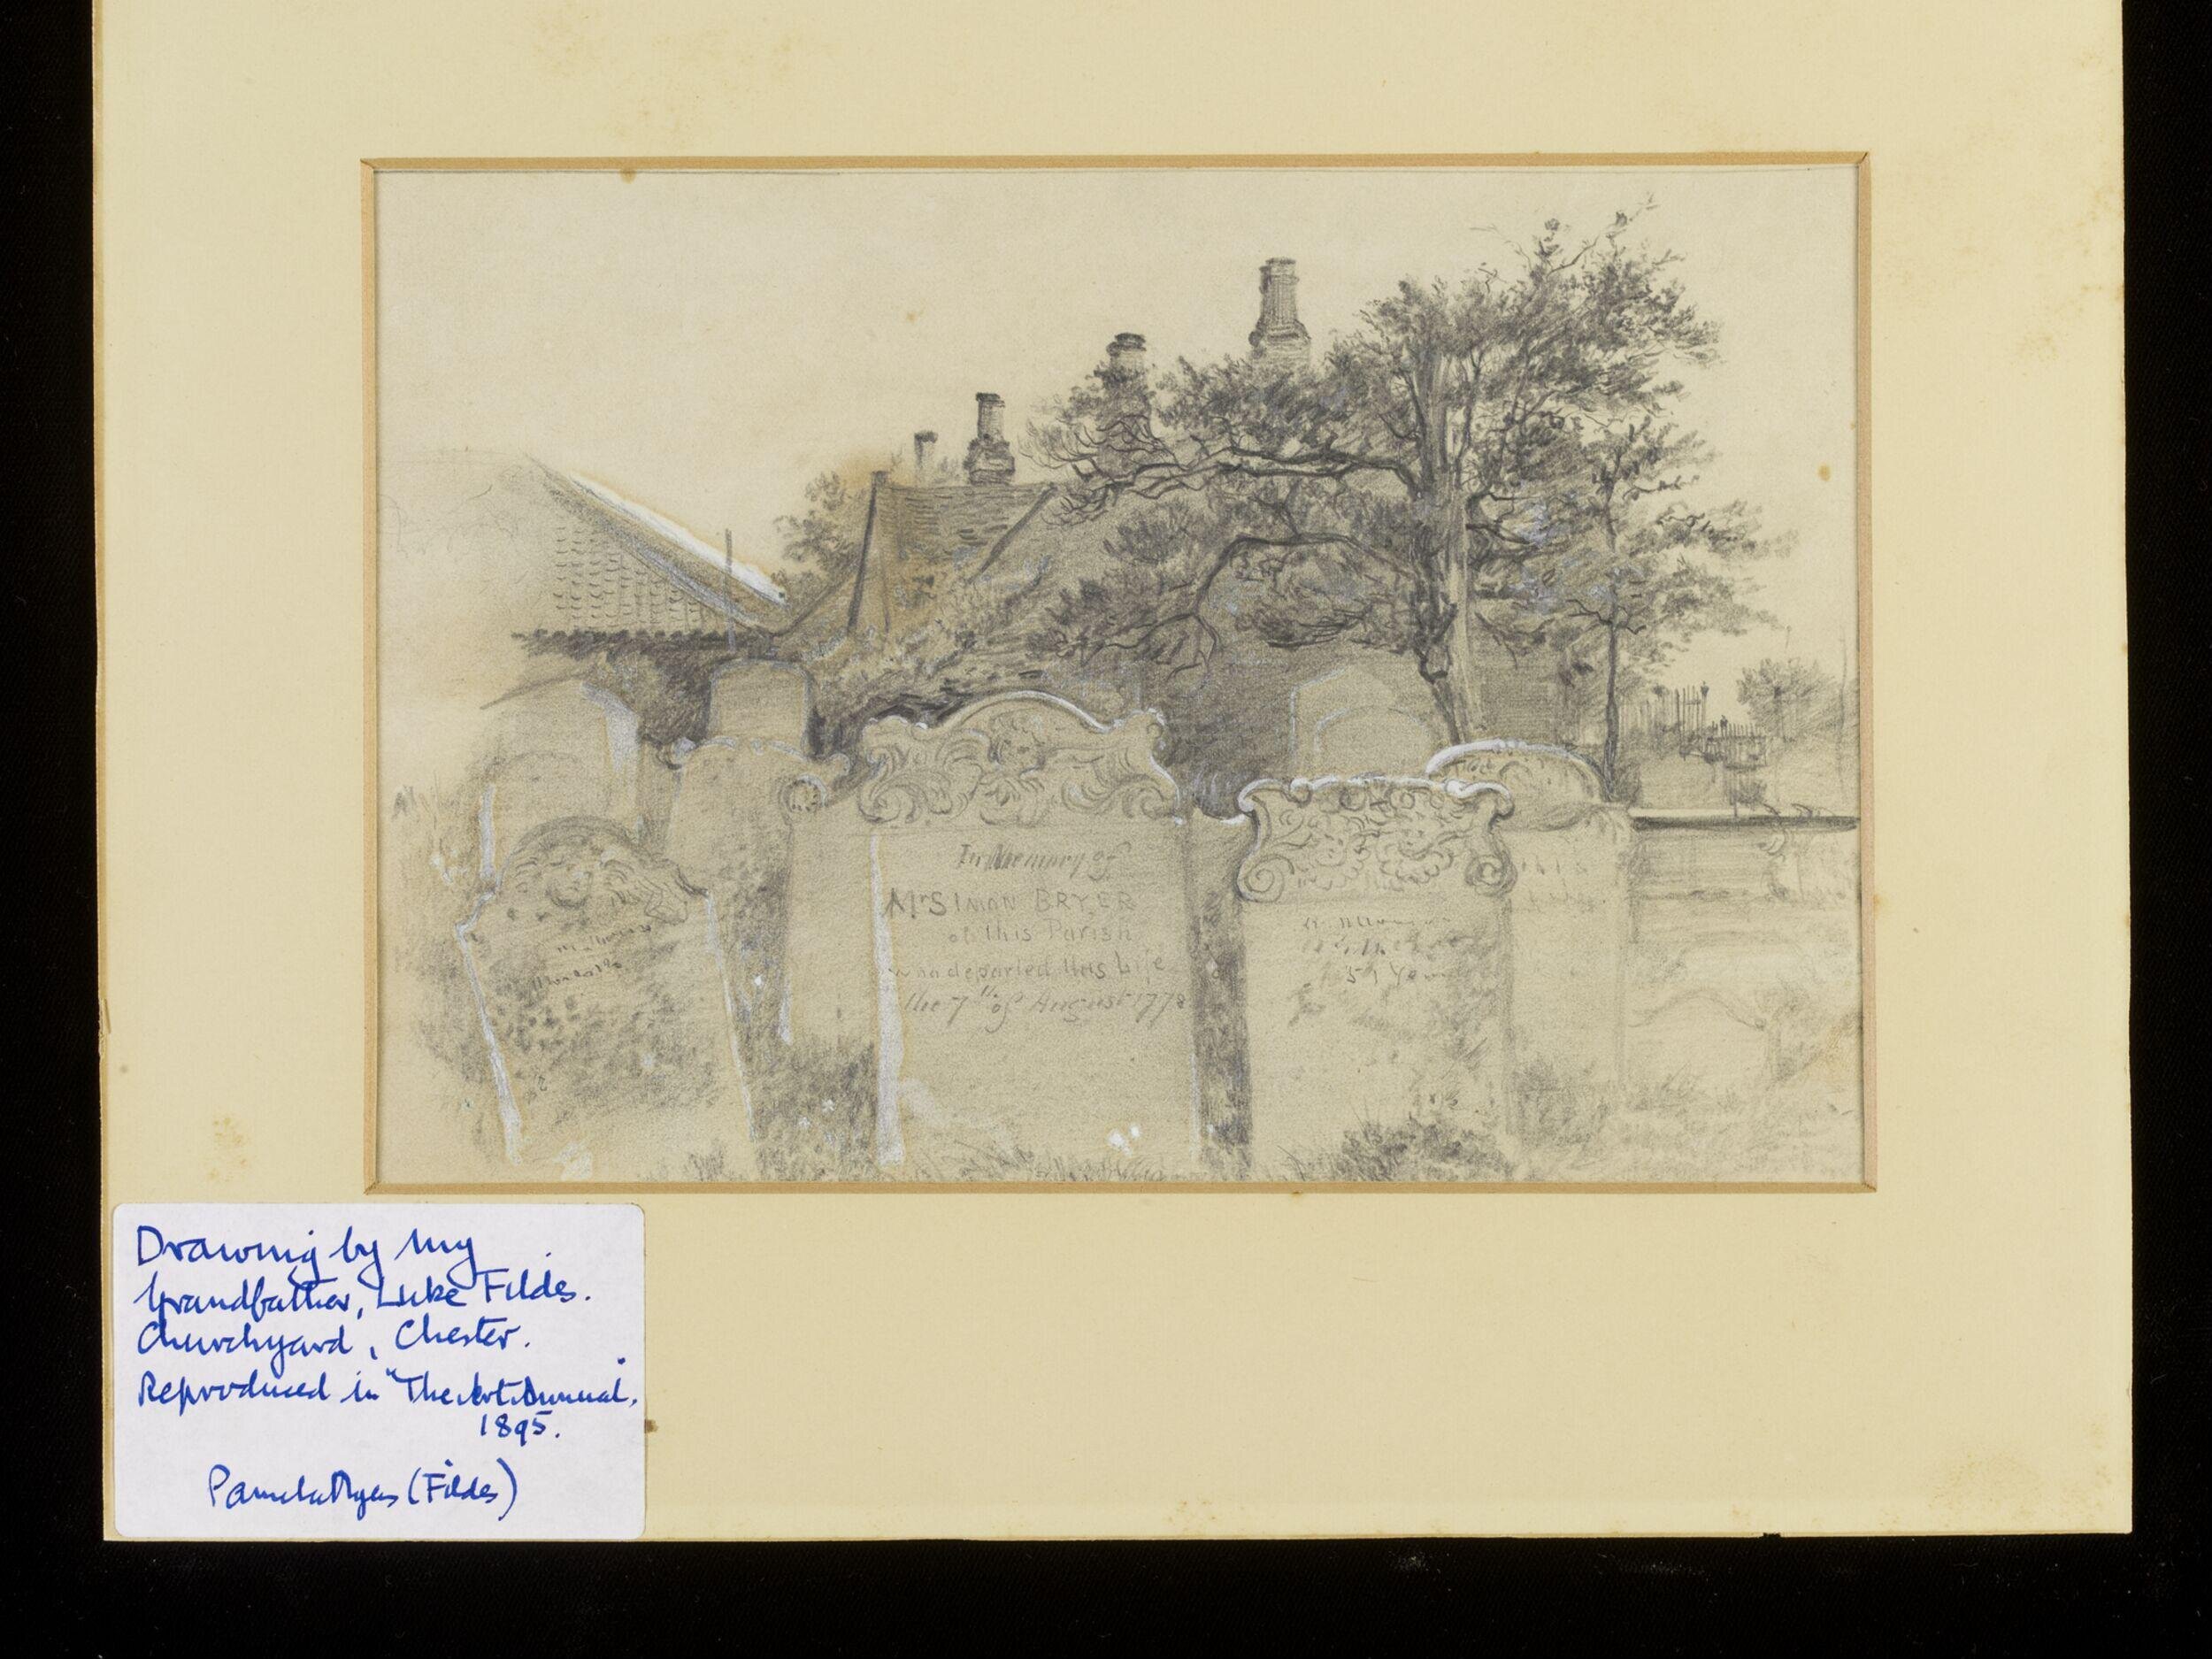 In Memory of
Mr SIMON BRYER
of this Parish
who departed this Life
the 7th of August 1778
51 Years
Drawing by my
Grandfather, Luke Fildes.
Churchyard, Chester.
Reproduced in "The Art Annual"
1895.
Pamela Myers (Fildes)